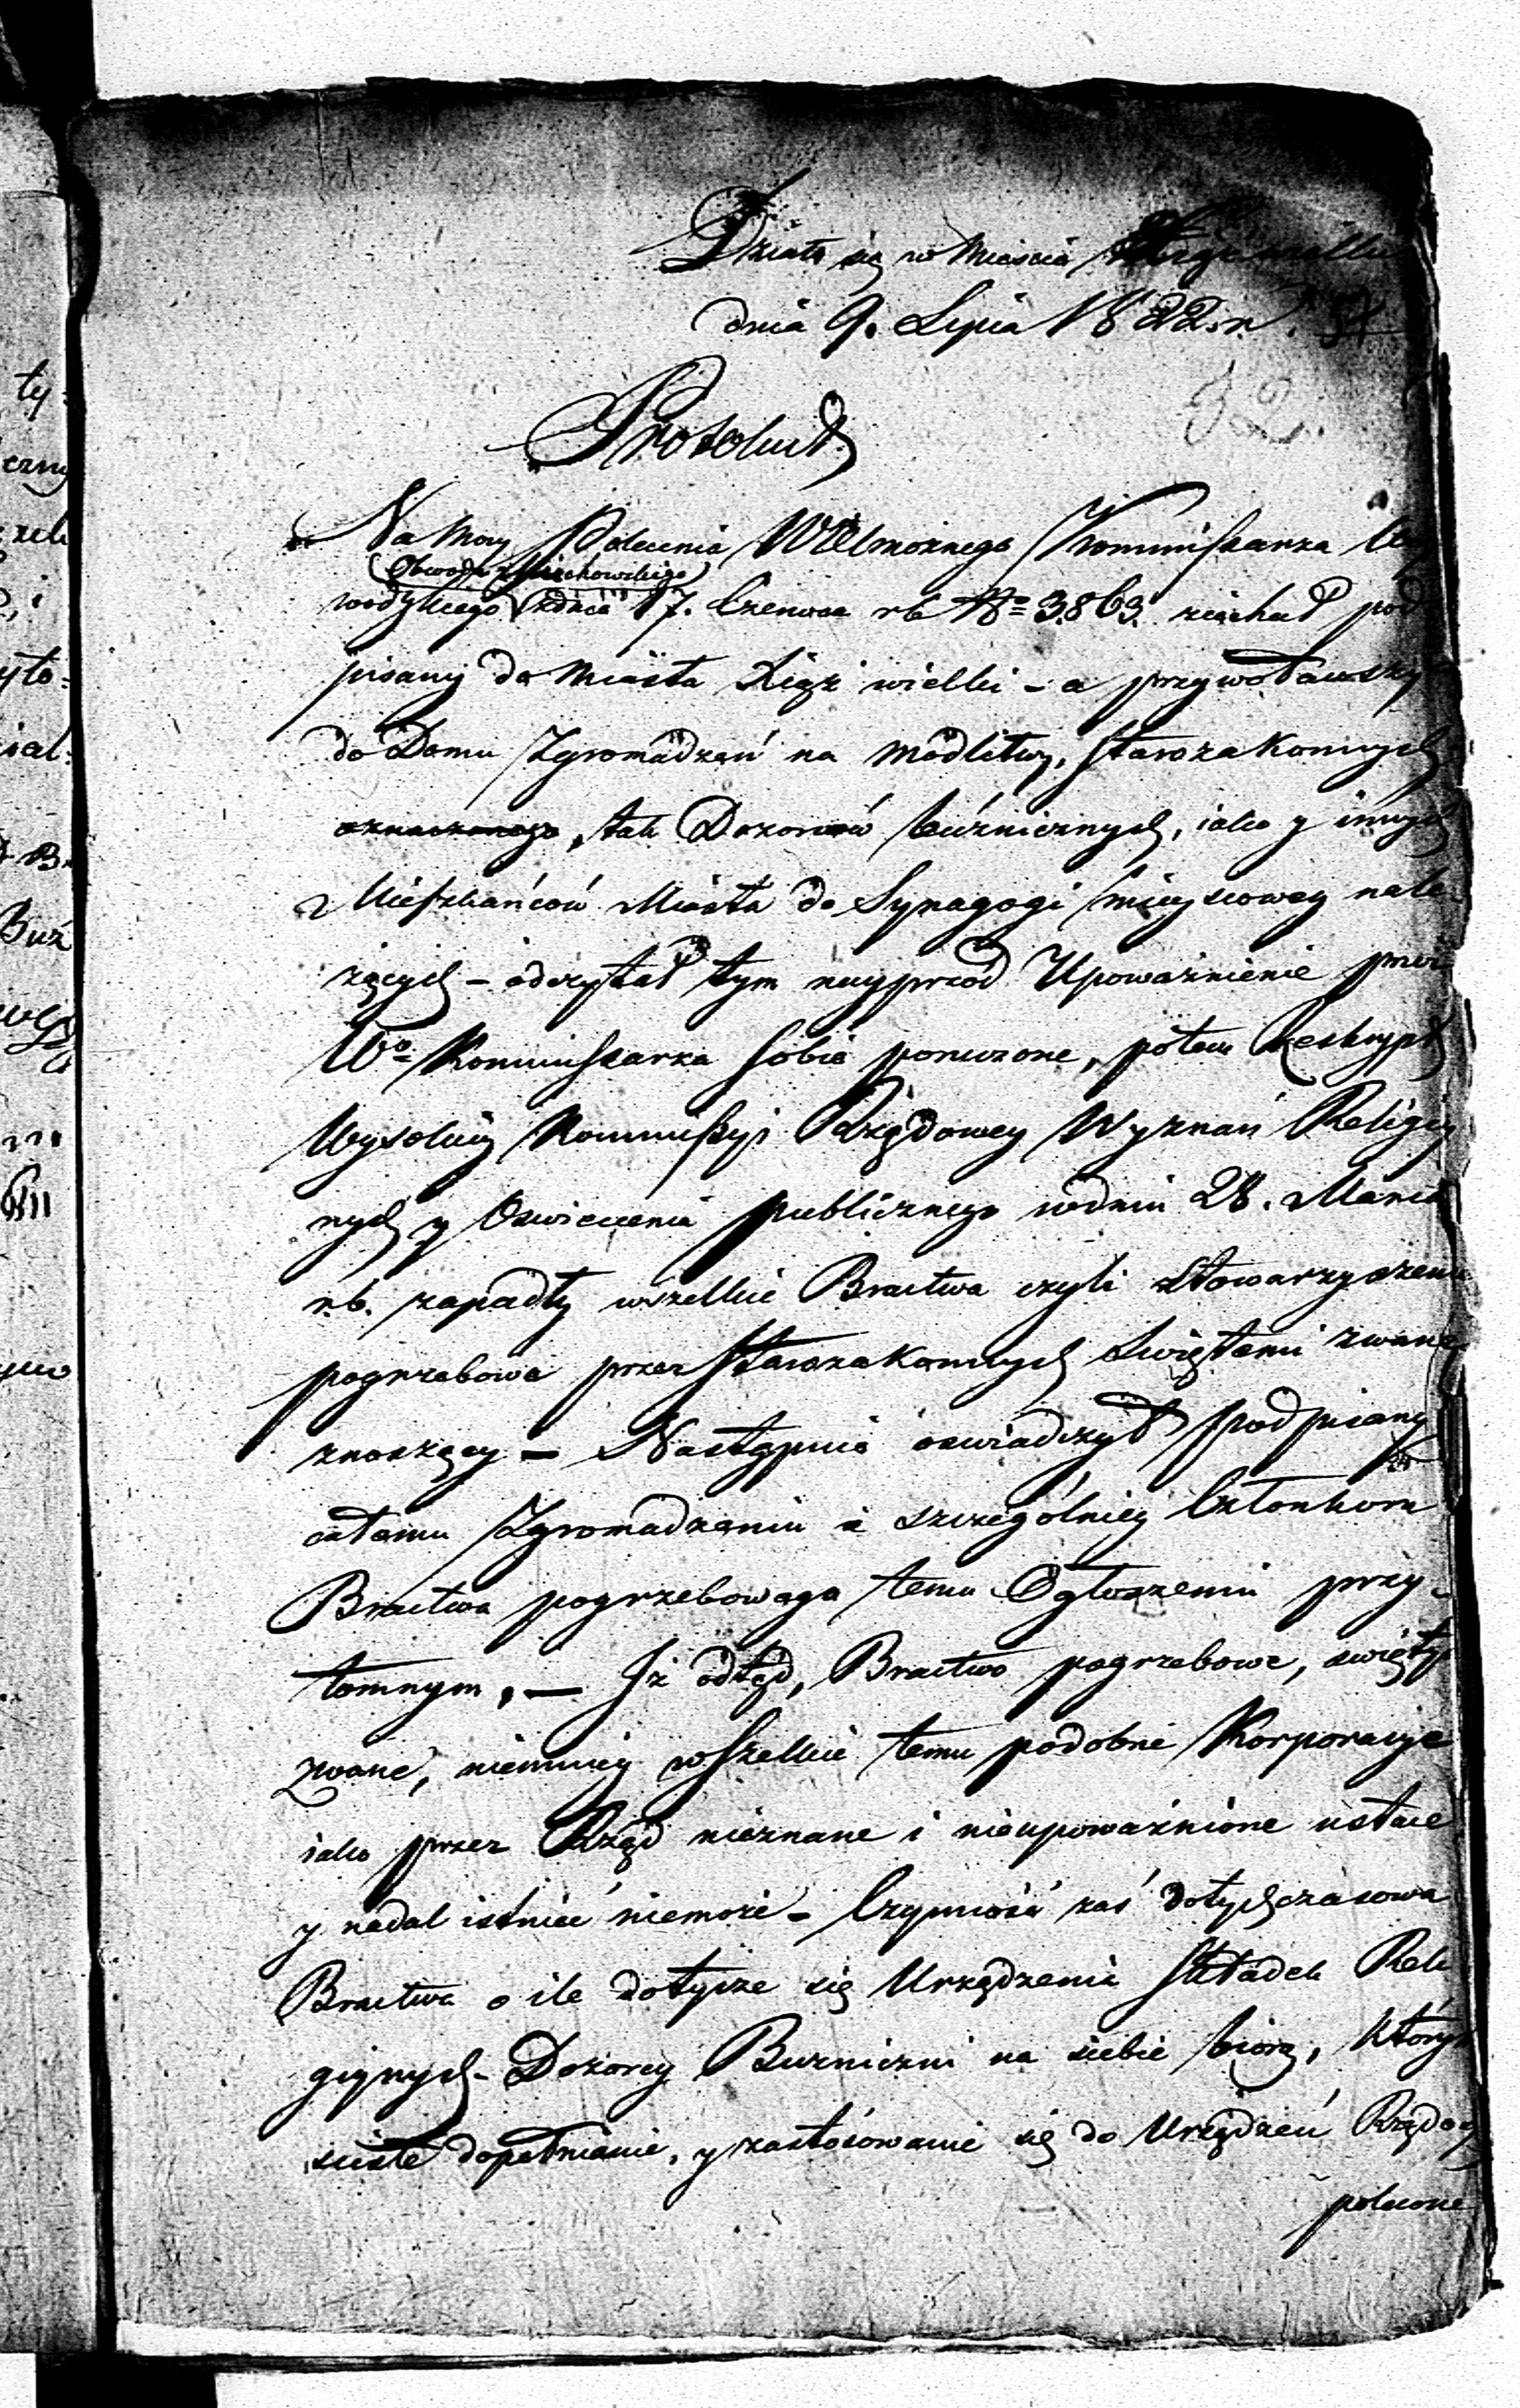 Działo się w Mieście
dnia 9. Lipca 1822. r.
32.
Protokuł
Na Mocy Polecenia WWelmożnego Kommissarza
(Obwodu Miechowskiego)
zdnia 17. Czerwca rb No 3863. ziechał pod
pisany do Miasta Xiąż wielki - a przywoławszy
do Domu Zgromadzeń na modlitwy, Starozakonnych
oznaczonego, tak Dozorców bużnicznych, iako y innych
Mieszkańców Miasta do Synagogi mieyscowey nale
żących - odczytał tym nayprzód Upoważnienie przez
Wo Kommissarza sobie poruczone, potem Reskrypt
Wysokiey Kommissyi Rządowey Wyznań Religiy
nych y Oswiecenia publicznego wdniu 28. Marca
rb. zapadły wszelkie Bractwa czyli Stowarzyszenia
pogrzebowe przez Starozakonnych Swiętemi zwane
znoszący - Następnie oswiadczył podpisany
całemu Zgromadzeniu a szczególniey Członkom
Bractwa pogrzebowego temu Ogłoszeniu przy-
tomnym, - Iż odtąd, Bractwo pogrzebowe, swięty
zwane, niemniey wszelkie temu podobne Korporacye
iako przez Rząd nieznane i nieupoważnione ustaie
y nadal istnieć niemoże - Czynność zaś dotychczasowa
Bractwa o ile dotycze się Urządzenia Składek Reli
giynych - Dozorcy Bużniczni na siebie biorą, których
sciste dopełnienie, y zastosowanie się do Urządzeń Rządo
polecone
ty-
czny
yto-
ial-
Buż